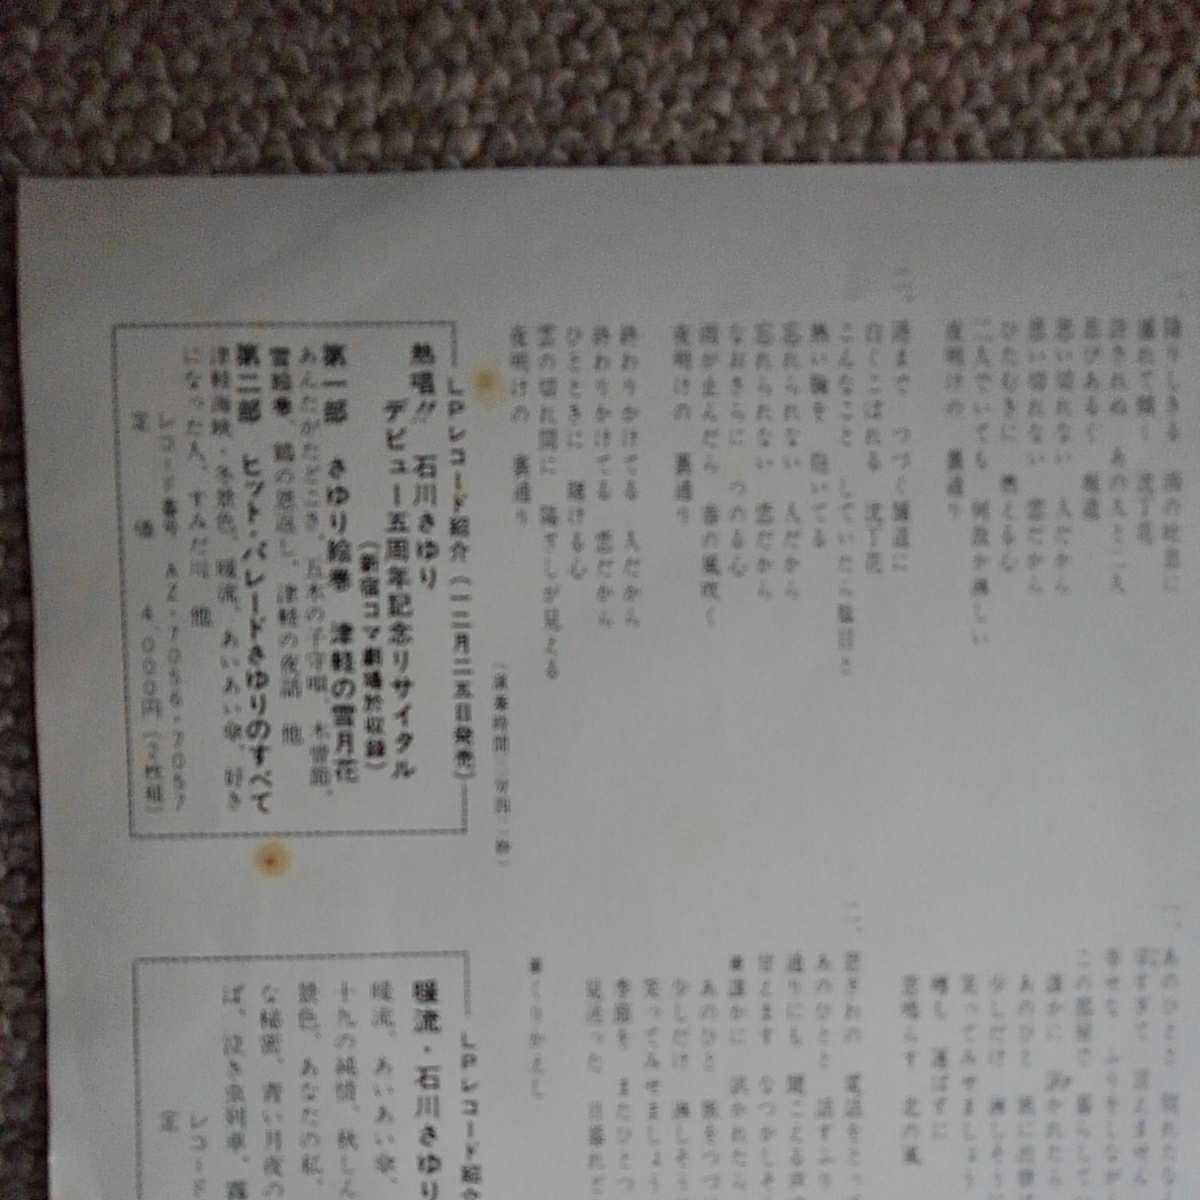 一、
降りしきる 雨の吐息に
濡れて傾く 沈丁花
許されぬ あの人と二人
忍びあるく 坂道
思い切れない 人だから
思い切れない 恋だから
ひたむきに 燃える心
二人でいても 何故か淋しい
夜明けの 裏通り
二、
港まで つづく舗道に
白くこぼれる 沈丁花
こんなこと していたら駄目と
熱い胸を 抱いてる
忘れられない 人だから
忘れられない 恋だから
なおさらに つのる心
雨が止んだら 春の風吹く
夜明けの 裏通り
終わりかけてる 人だから
終わりかけてる 恋だから
ひとときに 賭ける心
雲の切れ間に 陽ざしが見える
夜明けの 裏通り
(演奏時間 三分四
LPレコード紹介(一二月二五日発売)
熱唱!! 石川さゆり
デビュー五周年記念リサイタル
(新宿コマ劇場於収録)
第一部 さゆり絵巻 津軽の雪月花
あんたがたどこさ、五木の子守唄、木曽節、
雪絵巻、鶴の恩返し、津軽の夜話 他
第二部 ヒット・パレードさゆりのすべて
津軽海峡・冬景色、暖流、あいあい傘、好き
になった人、すみだ川 他
レコード番号 AZ-7056・7057
定 価 4,000円(2枚組)
一、
あのひとと 別れた
すぎて 言えません
幸せな ふりをしなが
この部屋で 暮らして
誰かに 訊かれたら
あのひと 旅に出
少しだけ 淋しそう
笑ってみせましょう
噂も 運ばずに
窓鳴らす 北の風
二、
あのひとと 話す
通りにも 聞こえる声
甘えます なつかしそ
※誰かに 訊かれたら
あのひと 旅をつづ
少しだけ 淋しそう
笑ってみせましょう
季節を またひとつ
見送った 日暮れど
※くりかえし
LPレコード紹介
暖流・石川さゆり
暖流、あいあい傘、
十九の純情、秋しん
景色、あなたの私、
な秘密、青い月夜の
ば、泣き虫列車、
レコード
定